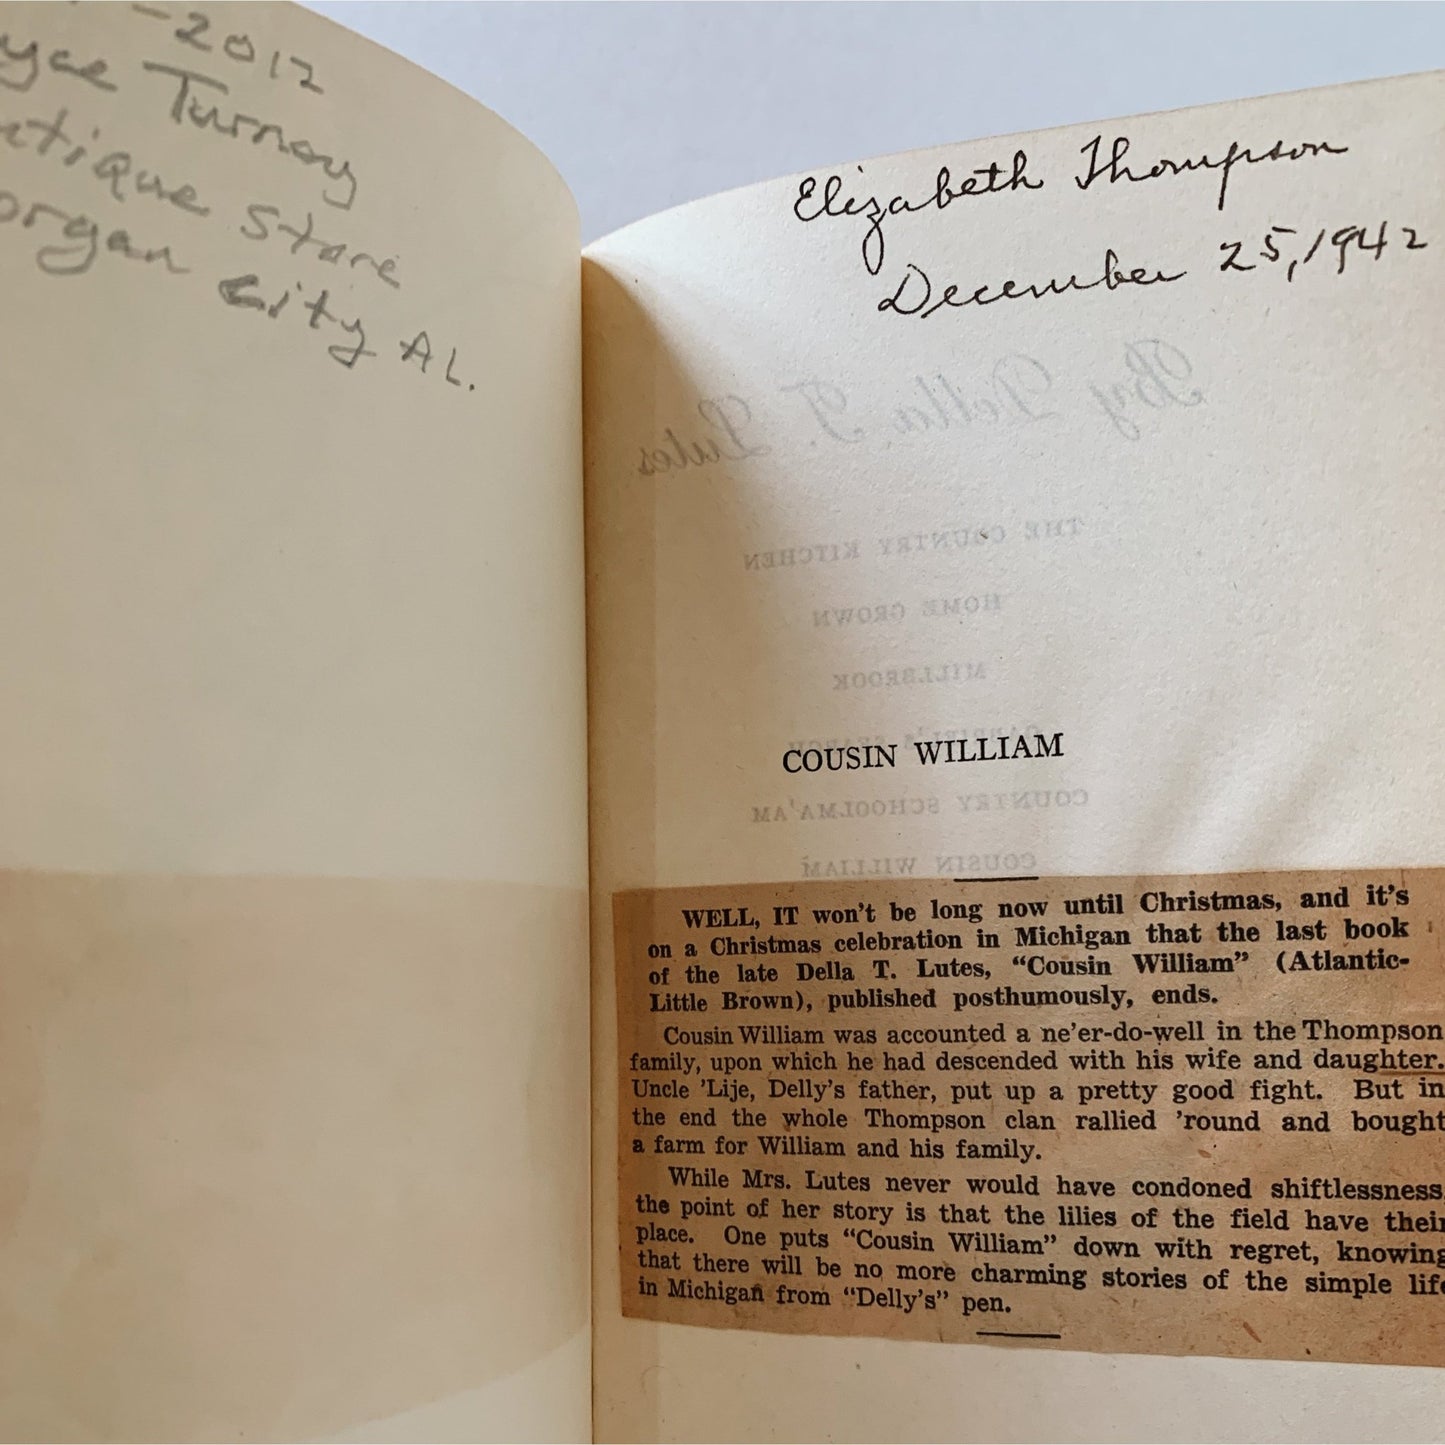 -2012
Turney
Store
City AL.
Elizabeth Thompson
December 25, 1942
By Della T. Lutes
THE COUNTRY KITCHEN
HOME GROWN
MILLBROOK
COUSIN WILLIAM
COUNTRY SCHOOLMA'AM
COUSIN WILLIAM
WELL, IT won't be long now until Christmas, and it's
on a Christmas celebration in Michigan that the last book
of the late Della T. Lutes, "Cousin William" (Atlantic-
Little Brown), published posthumously, ends.
Cousin William was accounted a ne'er-do-well in the Thompson
family, upon which he had descended with his wife and daughter.
Uncle 'Lije, Delly's father, put up a pretty good fight. But in
the end the whole Thompson clan rallied 'round and bought
a farm for William and his family.
While Mrs. Lutes never would have condoned shiftlessness,
the point of her story is that the lilies of the field have their
place. One puts "Cousin William" down with regret, knowing
that there will be no more charming stories of the simple life
in Michigan from "Delly's" pen.